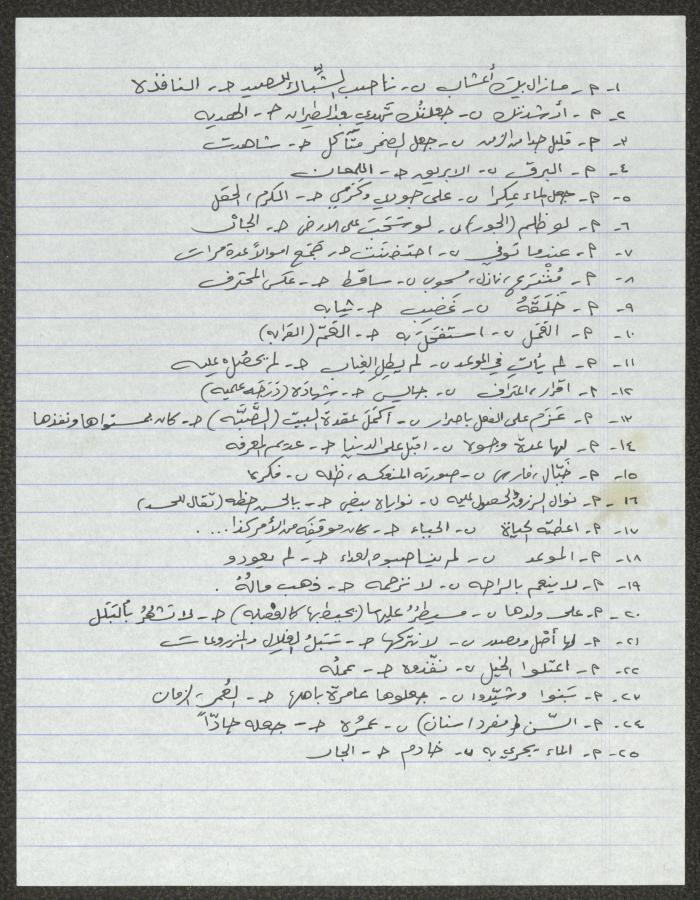 ١- م- مازال بيت أعشاب ن- ناصب الشِّباك للصيد ح- النافذه
٢- م- أرشدتك ن- جعلتُك تهدي بعد الطيران ح- الهديه
٣- م- قليل جدا من الزمن ن- جعل الصخر متآكل ح- شاهدت
٤- م- البرق ن- الابريق ح- اللمعان
٥- م- جعل الماء عكرا ن- على ح- الكرم، الحقل
٦- م- لو ظلم (الجور) ن- لو سَحَبَت على الارض ح- الجان
٧- م- عندما توفي ن- احتضنت ح- تجمع اموالاً عدة مرات
٨- م- نازل، مسحوب ن- ساقط ح- عكس المحترف
٩- م- خَلَقَهُ ن- غَضِب ح- ثيابه
١٠- م- القمل ن- استفحل به ح- القِمّه (القرابه)
١١- م- لم يأتِ في الموعد ن- لم يطل الغياب ح- لم يحصل عليه
١٢- م- اقرار، اعتراف ن- جالس ح- شهادة (دَرَجَه علميه)
١٣- م- عَزَم على الفعل باصرار ن- أكمَل عقدة البيت (الصَّبّه) ح- كان بمستواها ونفذها
١٤- م- لها عدة وجوه ن- اقبل على الدنيا ح- عديم المعرفه
١٥- م- خَيّال، فارس ن- صورته المنعكسه، ظله ن- فكرنا
١٦- م- نوال الرزق والحصول عليه ن- نواياه بيض ح- يالحسن حظه (تقال للحسد)
١٧- م- اعطته الحياة ن- الحياء ح- كان موقفَه من الأمر كذا....
١٨- م- الموعد ن- لم يناصبوه العداء ح- لم يعودو
١٩- م- لا ينعم بالراحه ن- لا ترحمه ح- ذهب مالهُ .
٢٠- م- على ولدها ن- مسيطرُ عليها (يحيطها كالفصله) ح- لا تشعُر بالبَلل
٢١- م- لها أصل ومصدر ن- لا نتركها ح- سَنبل الغلال والمزروعات
٢٢- م- اعتلوا الخيل ن- نفّذوه ح- عملُه
٢٣- م- بَنوا وشيّدوا ن- جعلوها عامرة باهلها ح- العُمر، الزمان
٢٤- م- السِّن (مفرد اسنان) ن- عمرُه ح- جعله حادّاً
٢٥- م- الماء يجري به ن- خادم ح- الجار